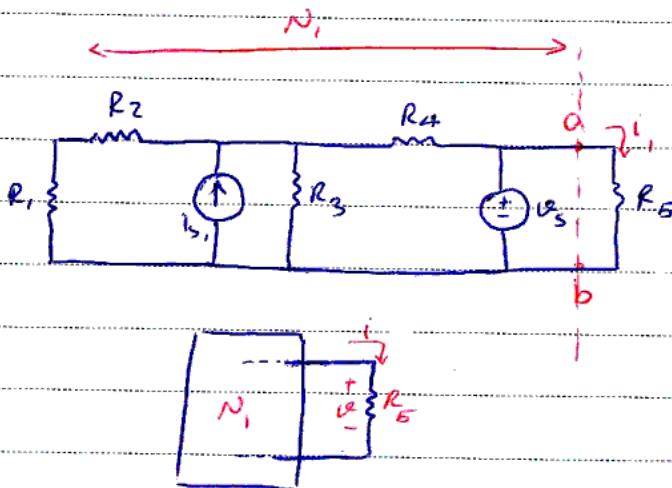 N₁
R2 R4 a i₁
R₁ is₁ R3 + - vs R5
b
i
N₁ + v - R5